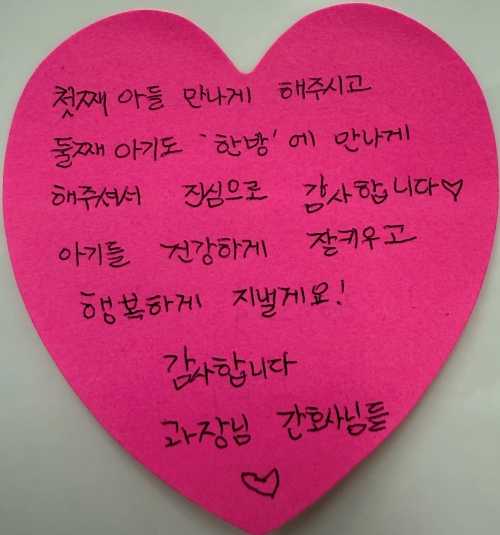 첫째 아들 만나게 해주시고
둘째 아기도 '한방'에 만나게
해주셔서 진심으로 감사합니다♡
아기들 건강하게 잘키우고
행복하게 지낼게요!
감사합니다
과장님 간호사님들
♡